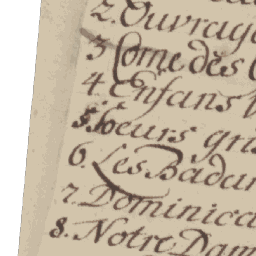 2. Ouvrag
3 Come des
4. Enfans
5. Soeurs gri
6. Les Badar
7. Dominica
8. Notre Dam